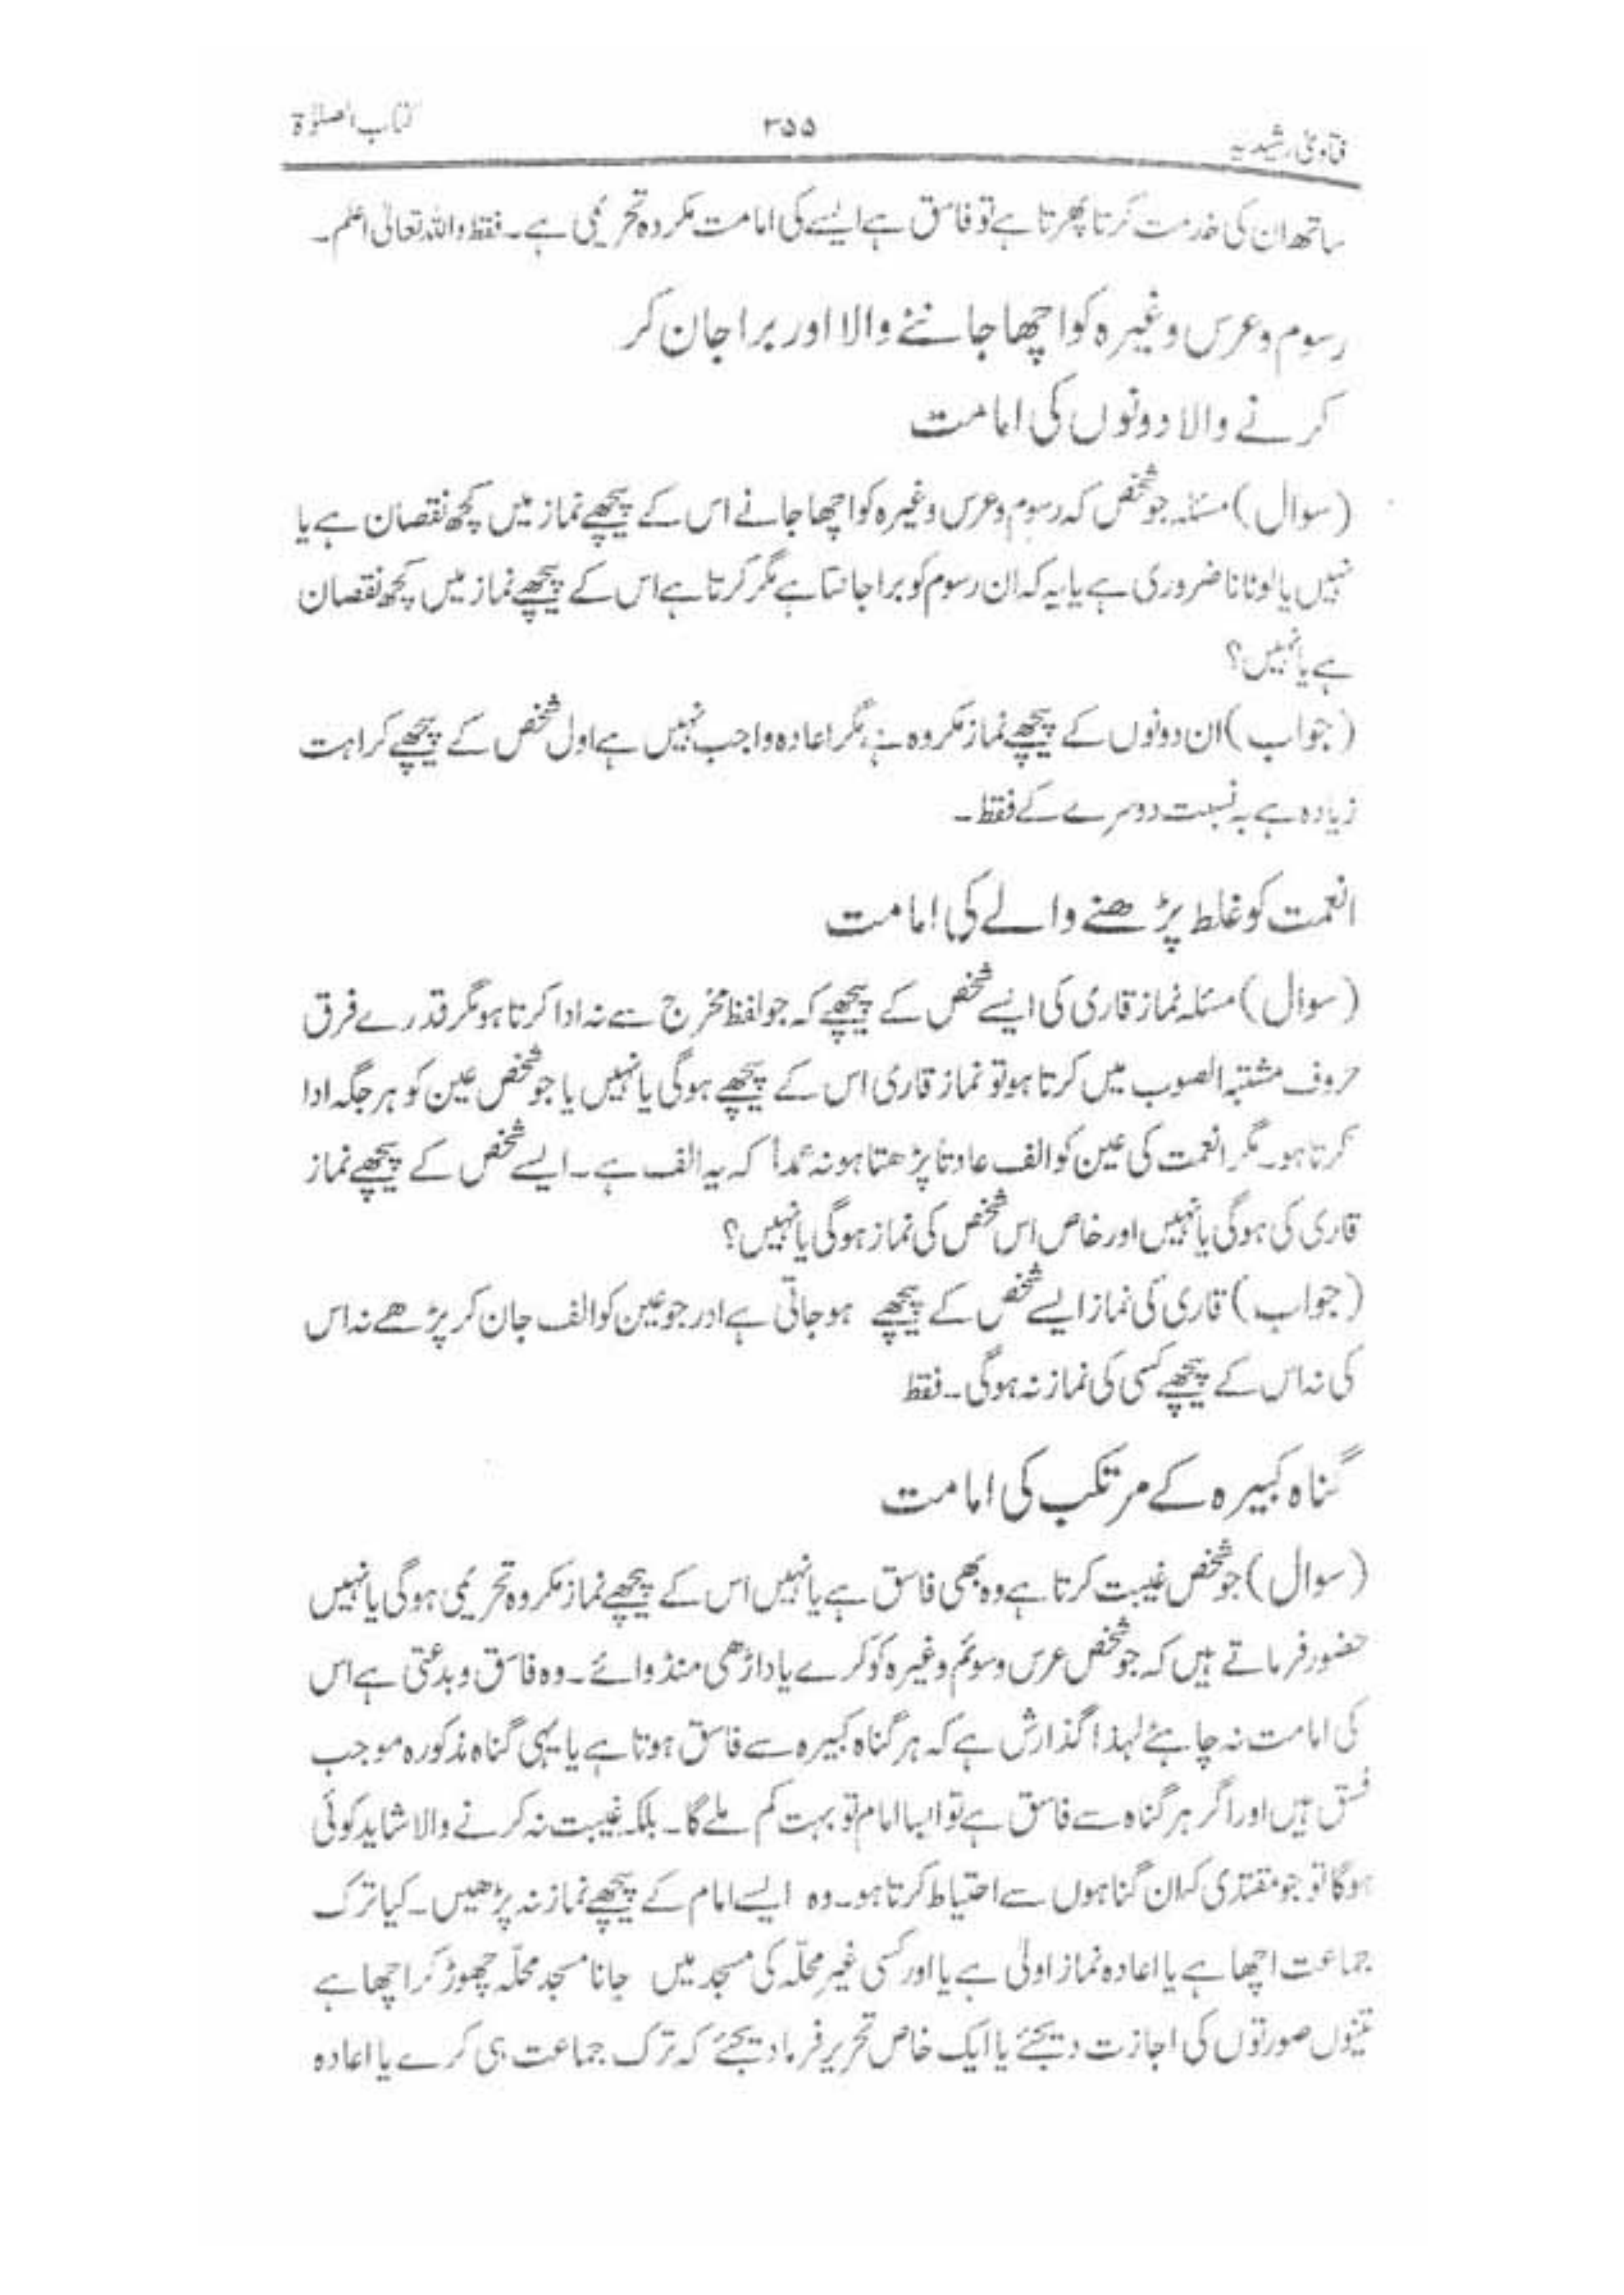 فتاویٰ رشیدیہ ۳۵۵ کتاب الصلوٰۃ
ساتھ ان کی خدمت کرتا پھرتا ہے تو فاسق ہے ایسے کی امامت مکروہ تحریمی ہے۔ فقط واللہ تعالیٰ اعلم۔
رسوم و عرس وغیرہ کو اچھا جاننے والا اور برا جان کر
کرنے والا دونوں کی امامت
(سوال) مسئلہ جو شخص کہ رسوم و عرس وغیرہ کو اچھا جانے اس کے پیچھے نماز میں کچھ نقصان ہے یا
نہیں یا لوٹانا ضروری ہے یا یہ کہ ان رسوم کو برا جانتا ہے مگر کرتا ہے اس کے پیچھے نماز میں کچھ نقصان
ہے یا نہیں؟
(جواب) ان دونوں کے پیچھے نماز مکروہ ہے مگر اعادہ واجب نہیں ہے اول شخص کے پیچھے کراہت
زیادہ ہے بہ نسبت دوسرے کے فقط۔
انعمت کو غلط پڑھنے والے کی امامت
(سوال) مسئلہ نماز قاری کی ایسے شخص کے پیچھے کہ جو لفظ مخرج سے نہ ادا کرتا ہو مگر قدرے فرق
حروف مشتبہ الصوب میں کرتا ہو تو نماز قاری اس کے پیچھے ہوگی یا نہیں یا جو شخص عین کو ہر جگہ ادا
کرتا ہو۔ مگر انعمت کی عین کو الف عادتاً پڑھتا ہو نہ عمداً کہ یہ الف ہے۔ ایسے شخص کے پیچھے نماز
قاری کی ہوگی یا نہیں اور خاص اس شخص کی نماز ہوگی یا نہیں؟
(جواب) قاری کی نماز ایسے شخص کے پیچھے ہو جاتی ہے ادر جو عین کو الف جان کر پڑھے نہ اس
کی نہ اس کے پیچھے کسی کی نماز نہ ہوگی۔ فقط
گناہ کبیرہ کے مرتکب کی امامت
(سوال) جو شخص غیبت کرتا ہے وہ بھی فاسق ہے یا نہیں اس کے پیچھے نماز مکروہ تحریمی ہوگی یا نہیں
حضور فرماتے ہیں کہ جو شخص عرس و سوئم وغیرہ کو کرے یا داڑھی منڈوائے۔ وہ فاسق و بدعتی ہے اس
کی امامت نہ چاہئے لہذا گذارش ہے کہ ہر گناہ کبیرہ سے فاسق ہوتا ہے یا یہی گناہ مذکورہ موجب
فسق ہیں اور اگر ہر گناہ سے فاسق ہے تو ایسا امام تو بہت کم ملے گا۔ بلکہ غیبت نہ کرنے والا شاید کوئی
ہوگا تو جو مقتدی کہ ان گناہوں سے احتیاط کرتا ہو۔ وہ ایسے امام کے پیچھے نماز نہ پڑھیں۔ کیا ترک
جماعت اچھا ہے یا اعادہ نماز اولٰی ہے یا اور کسی غیر محلّہ کی مسجد میں جانا مسجد محلّہ چھوڑ کر اچھا ہے
تینوں صورتوں کی اجازت دیجئے یا ایک خاص تحریر فرما دیجئے کہ ترک جماعت ہی کرے یا اعادہ